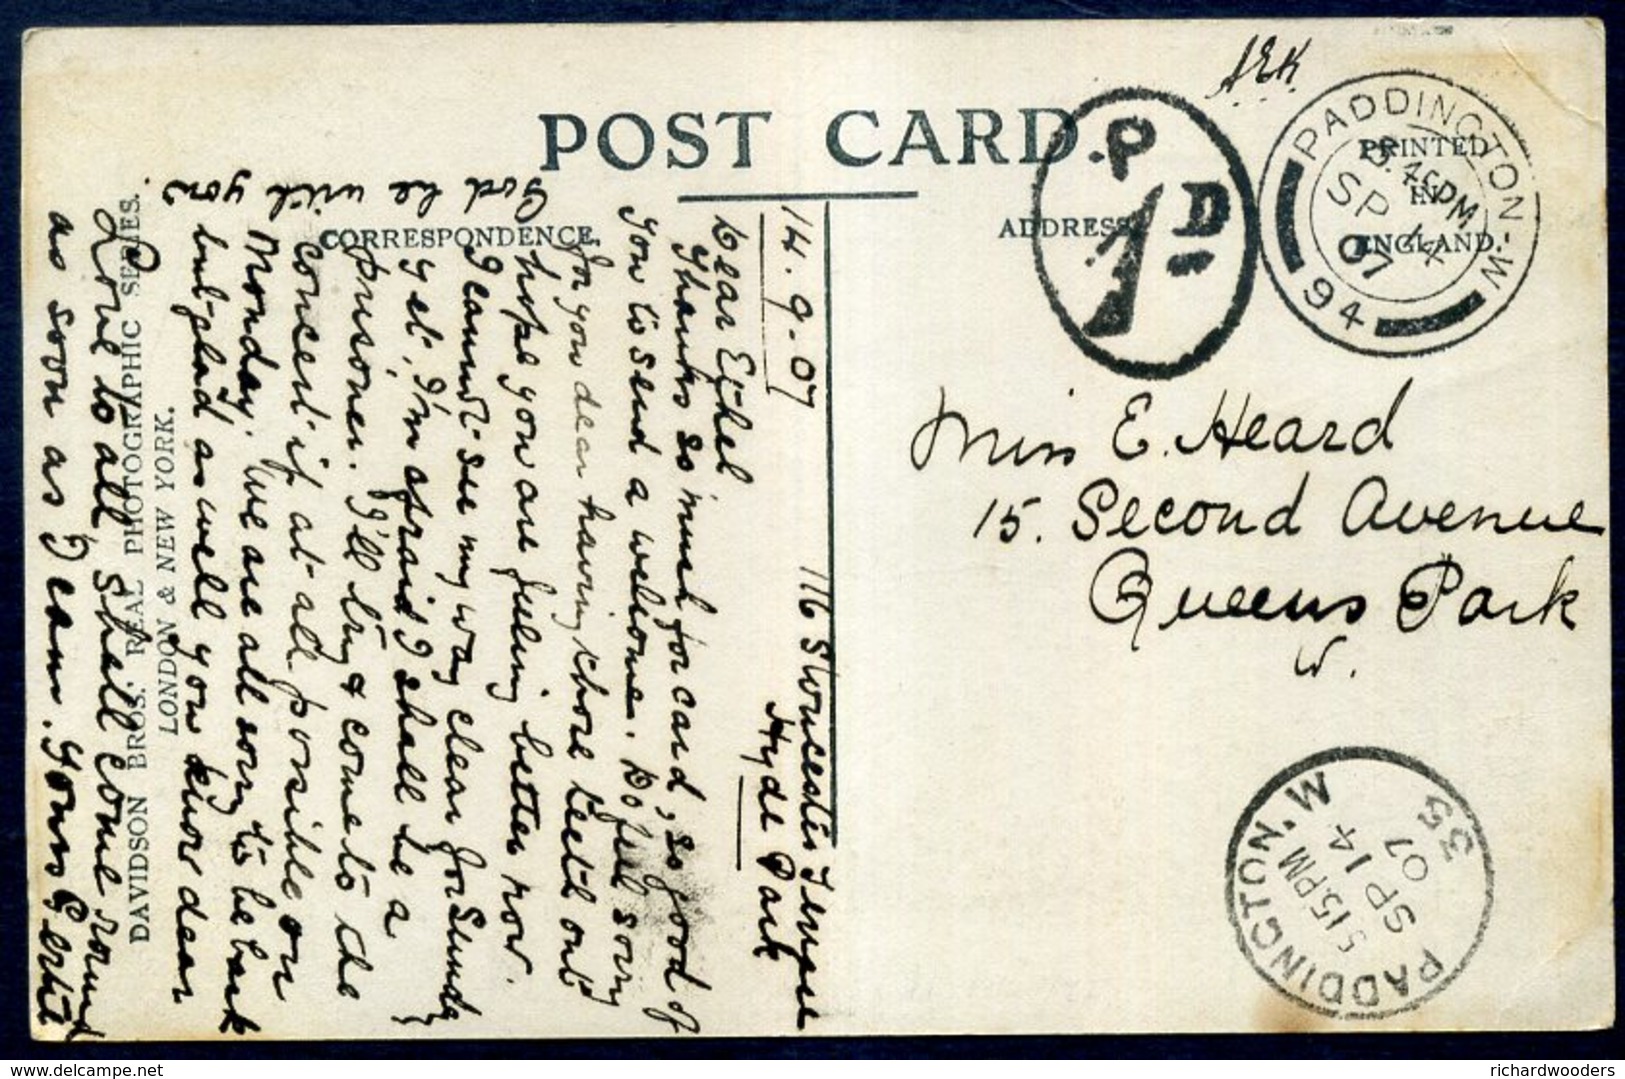 AEK
POST CARD.
CORRESPONDENCE.
ADDRESS
PRINTED
IN
ENGLAND.
P
1D
PADDINGTON-W
SP 14
07
94
Miss E. Heard
15. Second Avenue
Queens Park
W.
PADDINGTON. W
5 15.PM
SP 14
07
35
116 Terrace
Hyde Park
14.9.07
Dear Ethel
Thanks so much for card, so good of
you to send a welcome. Do feel sorry
for you dear having those teeth out
hope you are feeling better now.
I cannot see my way clear for Sunday
yet, I'm afraid I shall be a
prisoner. I'll try & come to the
Concert if at all possible on
Monday. We are all sorry to be back
but glad as well you know dear
God be with you.
Love to all Shall come round
as soon as I can. Yours Gertie
DAVIDSON BROS. REAL PHOTOGRAPHIC SERIES.
LONDON & NEW YORK.
richardwooders